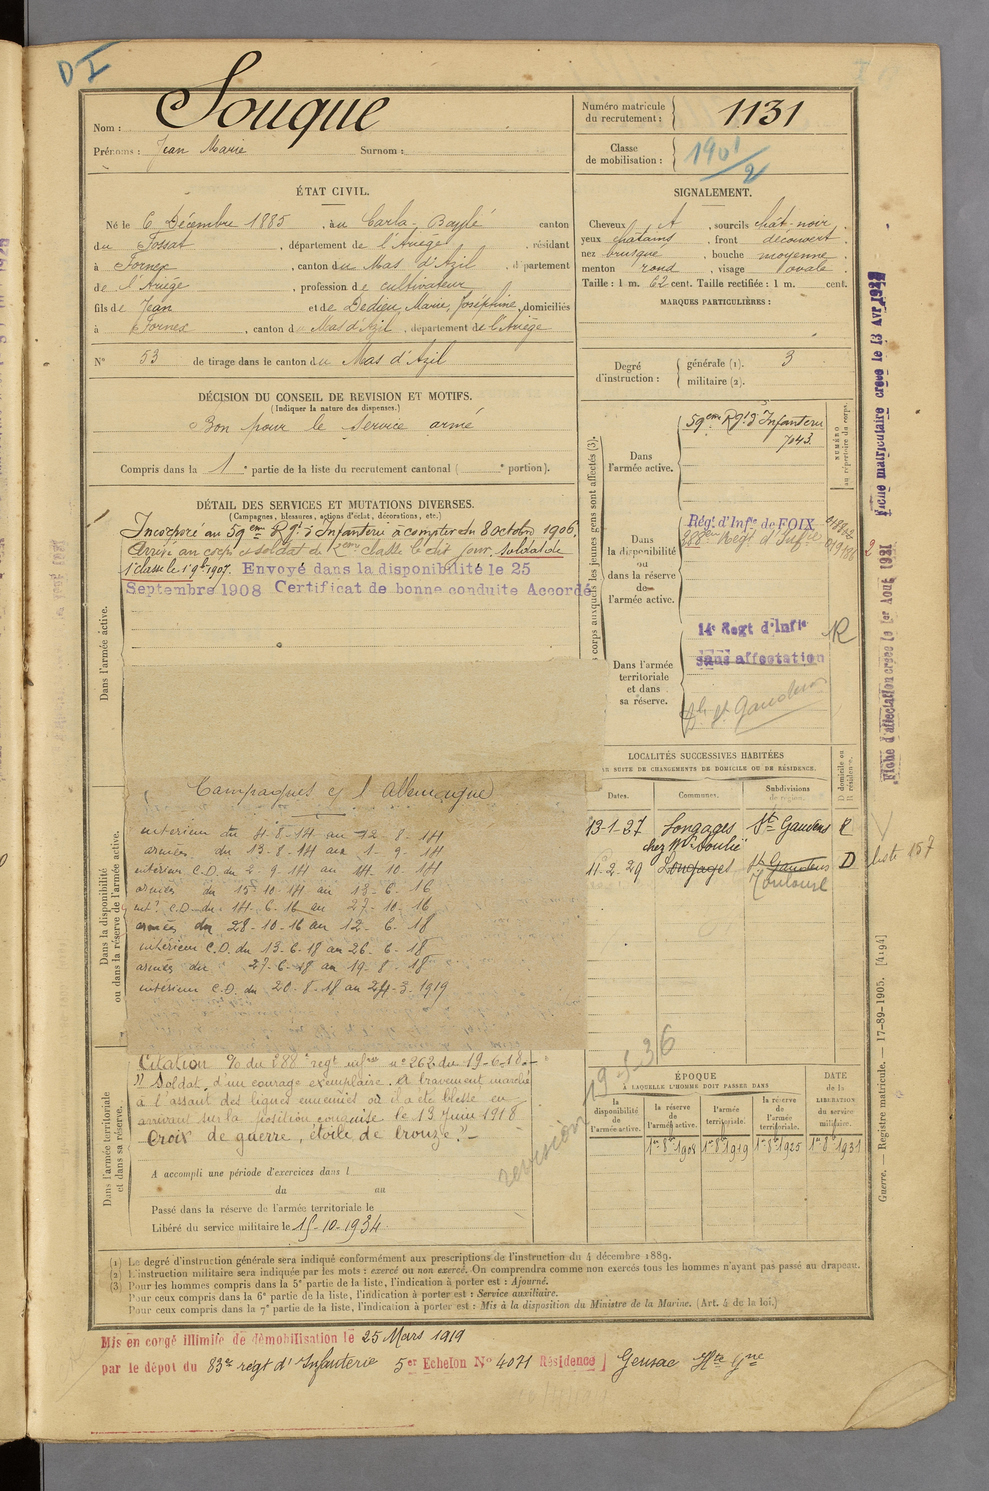 D I
Nom : Souque
Prénoms : Jean Marie Surnom :
Numéro matricule du recrutement : 1131
Classe de mobilisation : 1901/2
ÉTAT CIVIL.
Né le 6 Décembre 1885, à Carla-Bayle canton
du Fossat, département de l'Ariège, résidant
à Fornex, canton du Mas d'Azil, département
de l'Ariège, profession de cultivateur
fils de Jean et de Dedieu, Marie, Joséphine, domiciliés
à Fornex, canton du Mas d'Azil, département de l'Ariège
N° 53 de tirage dans le canton du Mas d'Azil
SIGNALEMENT.
Cheveux A, sourcils chât-noir.
yeux châtains, front découvert.
nez busqué, bouche moyenne.
menton rond, visage ovale.
Taille : 1 m. 62 cent. Taille rectifiée : 1 m. cent.
MARQUES PARTICULIÈRES :
Degré d'instruction : générale (1). 3
militaire (2).
DÉCISION DU CONSEIL DE REVISION ET MOTIFS.
(Indiquer la nature des dispenses.)
Bon pour le service armé
Compris dans la 1e partie de la liste du recrutement cantonal ( e portion).
DÉTAIL DES SERVICES ET MUTATIONS DIVERSES.
(Campagnes, blessures, actions d'éclat, décorations, etc.)
Dans l'armée active.
Incorporé au 59ème Rgt d'Infanterie à compter du 8 octobre 1906.
Arrivé au corps et soldat de 2ème classe le dit jour. Soldat de
1e classe le 1 9bre 1907. Envoyé dans la disponibilité le 25
Septembre 1908 Certificat de bonne conduite Accordé
Dans la disponibilité ou dans la réserve de l'armée active.
Campagnes c/ l'Allemagne
intérieur du 4-8-14 au 12-8-14
armées du 13-8-14 au 1-9-14
intérieur C.D. du 2-9-14 au 14-10-14
armées du 15-10-14 au 13-6-16
int. C.D. du 14-6-16 au 27-10-16
armées du 28-10-16 au 12-6-18
intérieur C.D. du 13-6-18 au 26-6-18
armées du 27-6-18 au 19-8-18
intérieur C.D. du 20-8-18 au 24-3-1919
Dans l'armée territoriale et dans sa réserve.
Citation % du 288e régt infrie n° 262 du 19-6-18.
"Soldat d'un courage exemplaire. A bravement marché
à l'assaut des lignes ennemies où il a été blessé en
arrivant sur la position conquise le 13 Juin 1918
Croix de guerre, étoile de bronze."
A accompli une période d'exercices dans l
du au
Passé dans la réserve de l'armée territoriale le
Libéré du service militaire le 15-10-1934
corps auxquels les jeunes gens sont affectés (3).
NUMÉRO au répertoire du corps.
Dans l'armée active.
59ème Rgt d'Infanterie
7043.
Dans la disponibilité ou dans la réserve de l'armée active.
Régt d'Infie de FOIX
288ème Régt d'Infie
Dans l'armée territoriale et dans sa réserve.
14e Regt d'Infie R
sans affectation
St Gaudens
LOCALITÉS SUCCESSIVES HABITÉES
PAR SUITE DE CHANGEMENTS DE DOMICILE OU DE RÉSIDENCE.
Dates. Communes. Subdivisions de région. D domicile ou R résidence.
13-1-27 Longages St Gaudens R
chez Mr Soulié
11-2-29 Longages St Gaudens D
Toulouse
liste 157
revision 19-5-36
ÉPOQUE
À LAQUELLE L'HOMME DOIT PASSER DANS
DATE de la LIBÉRATION du service militaire.
la disponibilité de l'armée active.
la réserve de l'armée active.
l'armée territoriale.
la réserve de l'armée territoriale.
1er 8bre 1908 1er 8bre 1919 1er 8bre 1925 1er 8bre 1931
(1) Le degré d'instruction générale sera indiqué conformément aux prescriptions de l'instruction du 4 décembre 1889.
(2) L'instruction militaire sera indiquée par les mots : exercé ou non exercé. On comprendra comme non exercés tous les hommes n'ayant pas passé au drapeau.
(3) Pour les hommes compris dans la 5e partie de la liste, l'indication à porter est : Ajourné.
Pour ceux compris dans la 6e partie de la liste, l'indication à porter est : Service auxiliaire.
Pour ceux compris dans la 7e partie de la liste, l'indication à porter est : Mis à la disposition du Ministre de la Marine. (Art. 4 de la loi.)
Mis en congé illimité de démobilisation le 25 Mars 1919
par le dépot du 83e régt d'Infanterie 5er Echelon N° 4071 Résidence] Gensac Hte Gne
Fiche matriculaire créée le 13 Avr
Fiche d'affectation créée le 1er Août 1931
Guerre. — Registre matricule. — 17-89-1905. [4194]